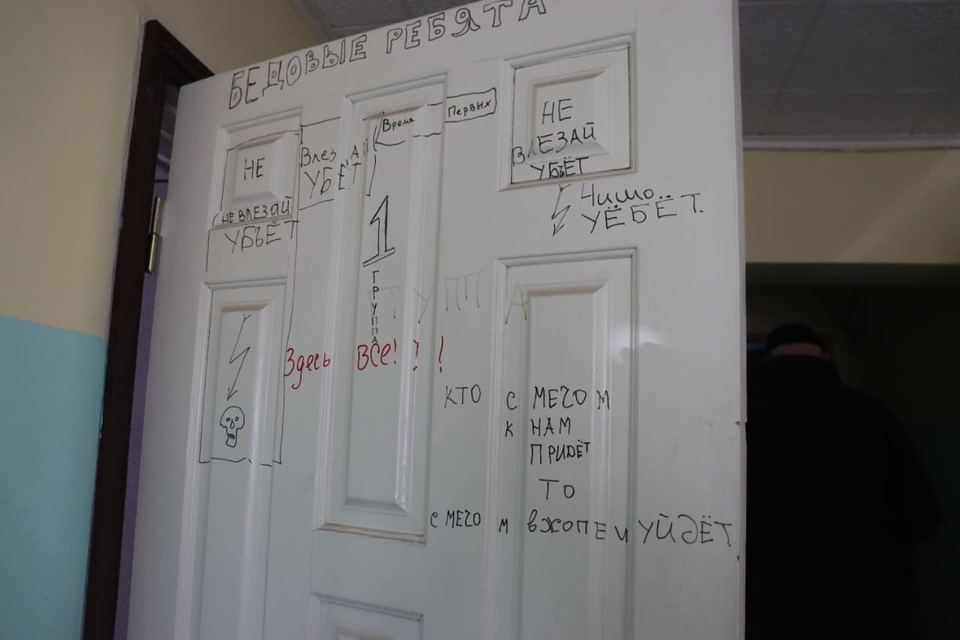 БЕДОВЫЕ РЕБЯТА
НЕ
НЕ ВЛЕЗАЙ
УБЪЁТ
Влезай
УБЪЁТ
Время
Первых
1
ГРУППА
НЕ
ВЛЕЗАЙ
УБЪЁТ
УЁБЁТ
ГРУППА
Здесь ВСЕ!!!
КТО С МЕЧОМ
К НАМ
ПРИДЁТ
ТО
С МЕЧОМ В ЖОПЕ И УЙДЁТ